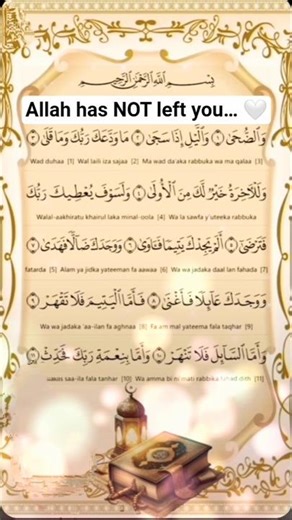 بِسْمِ اللَّهِ الرَّحْمَٰنِ الرَّحِيمِ
Allah has NOT left you... 🤍
وَالضُّحَىٰ ﴿١﴾ وَالَّيْلِ إِذَا سَجَىٰ ﴿٢﴾ مَا وَدَّعَكَ رَبُّكَ وَمَا قَلَىٰ ﴿٣﴾
Wad duhaa [1] Wal laili iza sajaa [2] Ma wad da'aka rabbuka wa ma qalaa [3]
وَلَلْآخِرَةُ خَيْرٌ لَّكَ مِنَ الْأُولَىٰ ﴿٤﴾ وَلَسَوْفَ يُعْطِيكَ رَبُّكَ
Walal-aakhiratu khairul laka minal-oola [4] Wa la sawfa y'uteeka rabbuka
فَتَرْضَىٰ ﴿٥﴾ أَلَمْ يَجِدْكَ يَتِيمًا فَآوَىٰ ﴿٦﴾ وَوَجَدَكَ ضَالًّا فَهَدَىٰ ﴿٧﴾
fatarda [5] Alam ya jidka yateeman fa aawaa [6] Wa wa jadaka daal lan fahada [7]
وَوَجَدَكَ عَائِلًا فَأَغْنَىٰ ﴿٨﴾ فَأَمَّا الْيَتِيمَ فَلَا تَقْهَرْ ﴿٩﴾
Wa wa jadaka 'aa-ilan fa aghnaa [8] Fa am mal yateema fala taqhar [9]
وَأَمَّا السَّائِلَ فَلَا تَنْهَرْ ﴿١٠﴾ وَأَمَّا بِنِعْمَةِ رَبِّكَ فَحَدِّثْ ﴿١١﴾
saa-ila fala tanhar [10] Wa amma bi ni mati rabbika fahad dith [11]